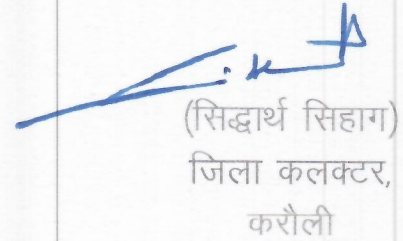 (सिद्धार्थ सिहाग)
जिला कलक्टर,
करौली